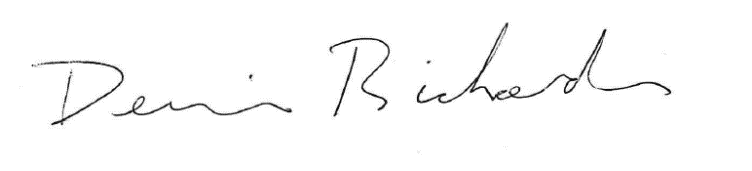 Denis Richards